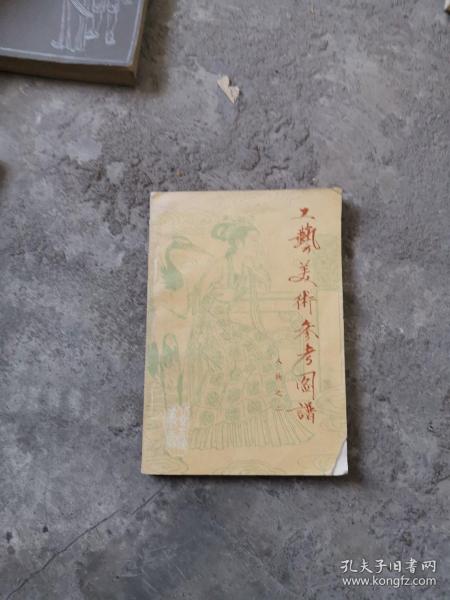 工藝美術参考図譜
人物之二
孔夫子旧书网
www.kongfz.com